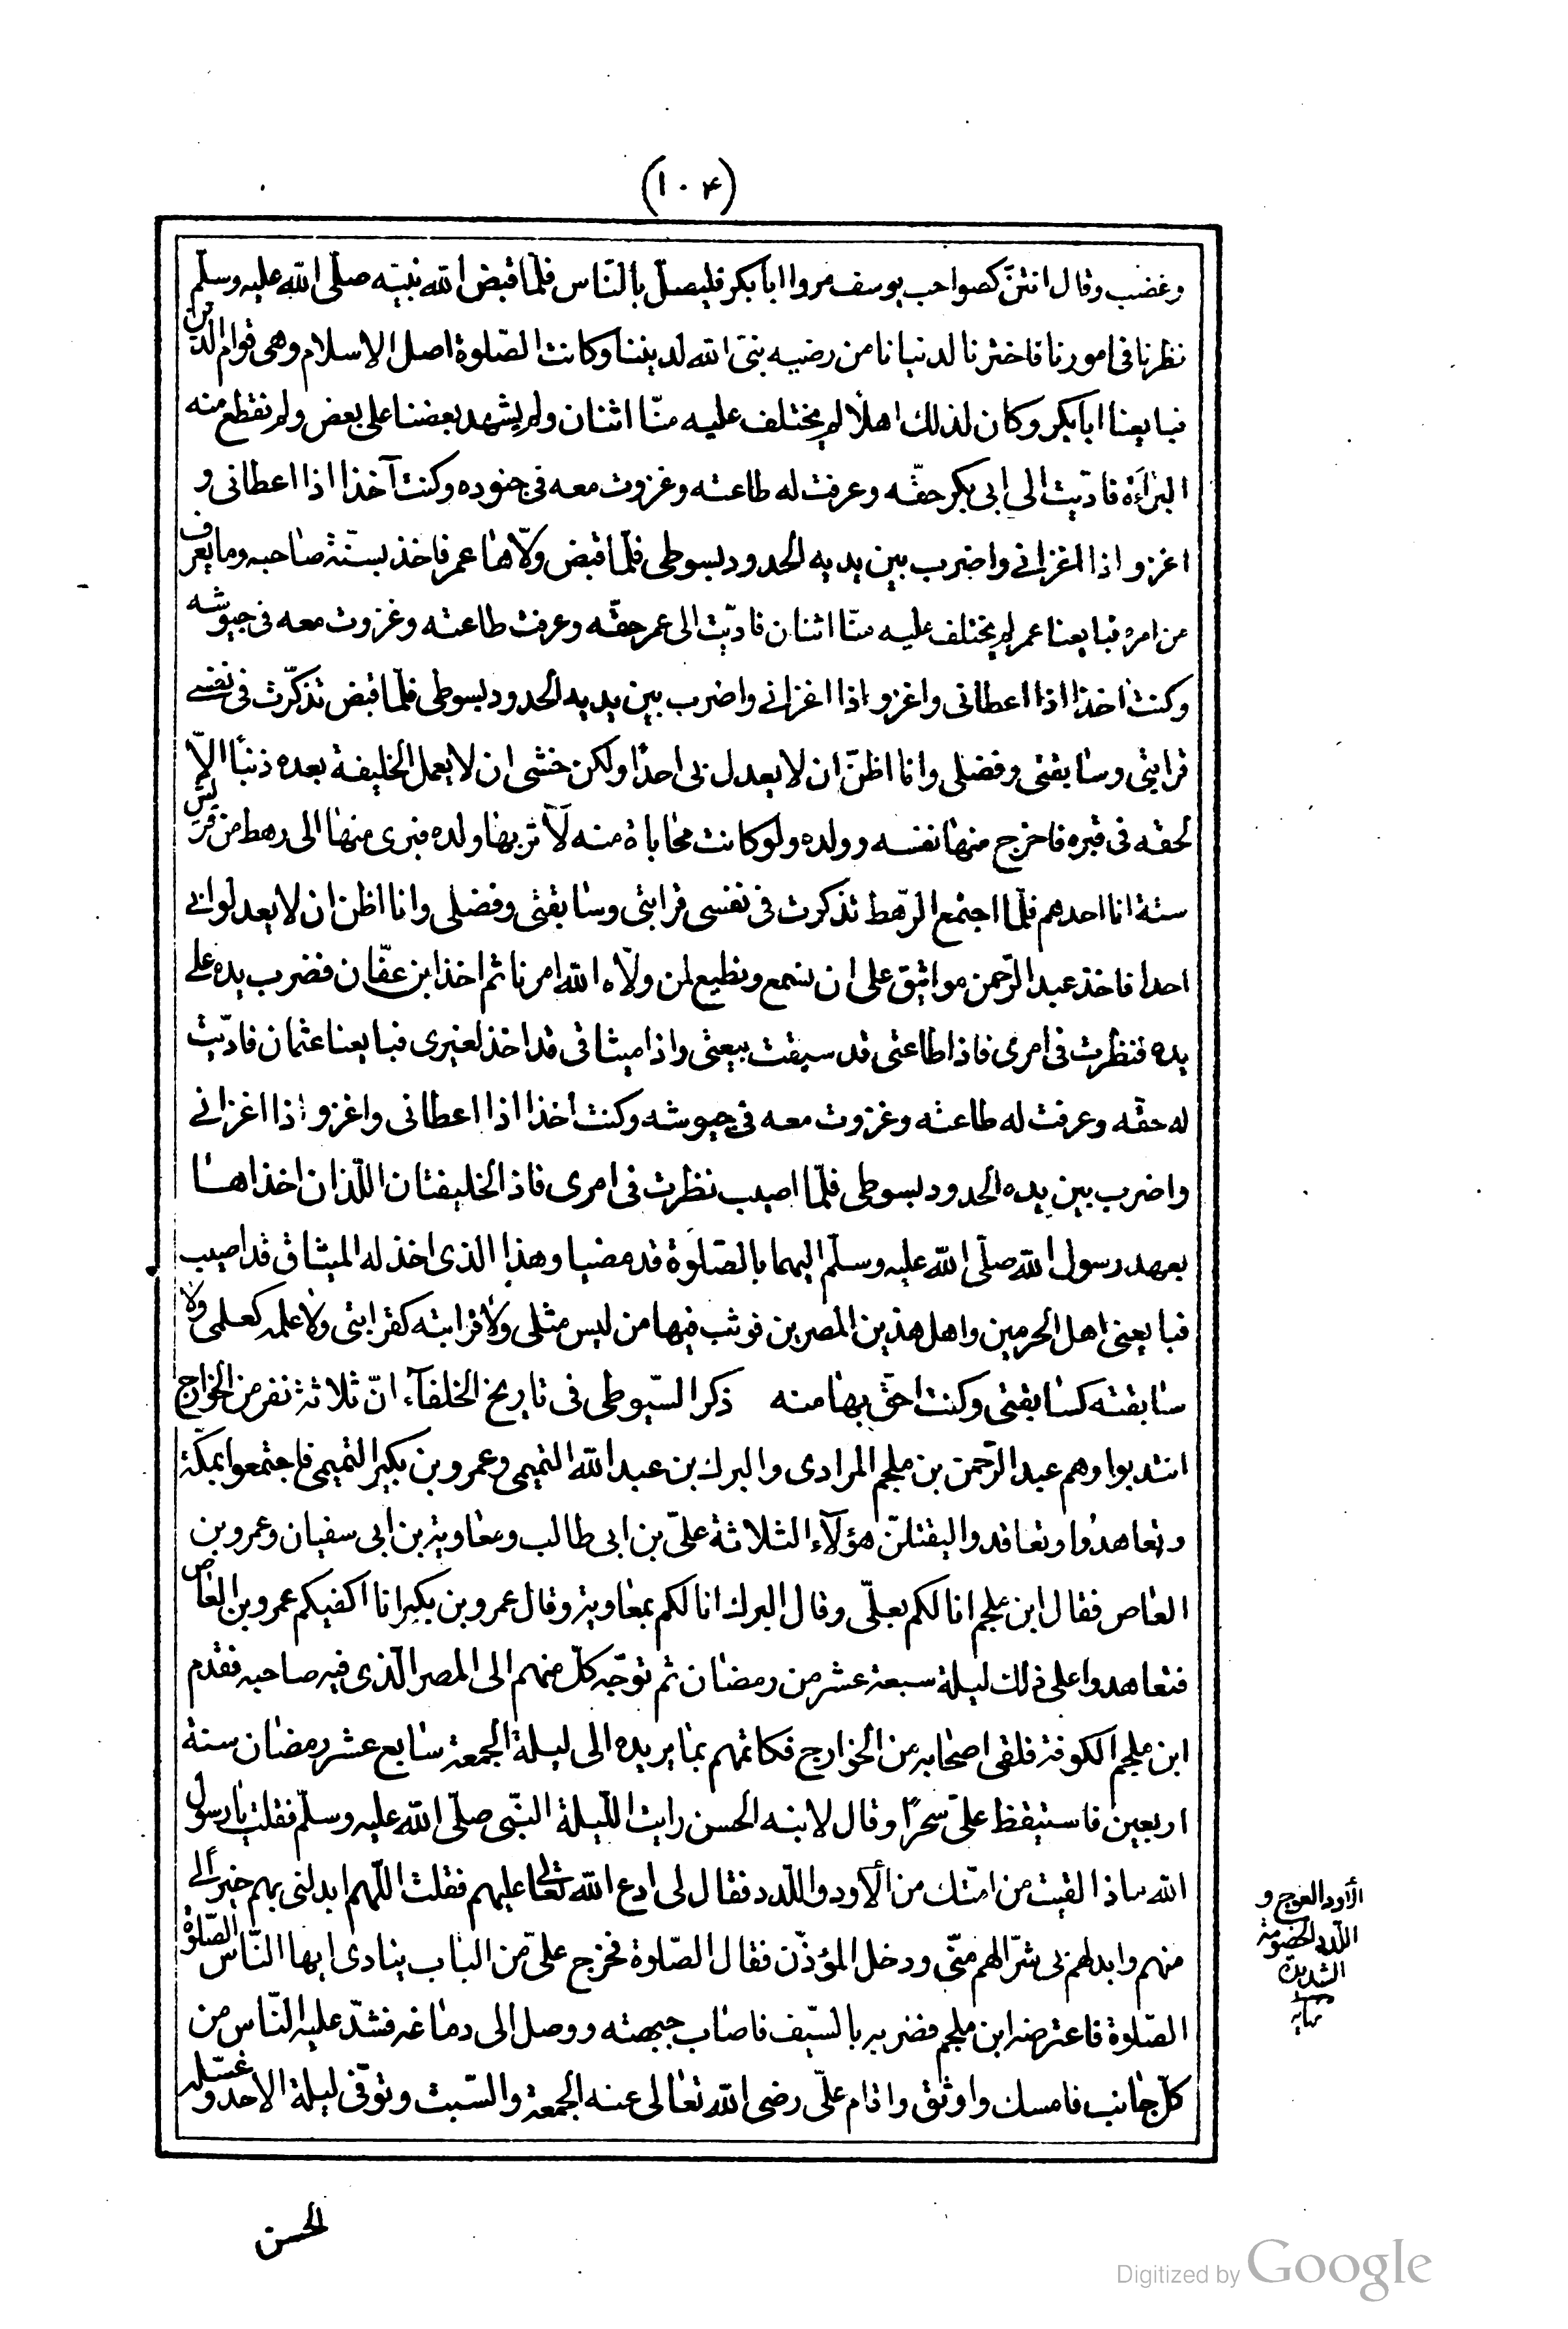 (١٠۴)
وغضب وقال انتنّ كصواحب يوسف مروا ابا بكر فليصلّ بالنّاس فلمّا قبض الله نبيّه صلّى الله عليه وسلّم
نظرنا فى امورنا فاخترنا لدنيانا من رضيه نبىّ الله لديننا وكانت الصّلوة اصل الاسلام وهى قوام الدّين
فبايعنا ابا بكر وكان لذلك اهلًا لم يختلف عليه منّا اثنان ولم يشهد بعضنا على بعض ولم نقطع منه
البرَاءَة فادّيت الى ابى بكر حقّه وعرفت له طاعته وغزوت معه فى جنوده وكنت آخذ اذا اعطانى و
اغزو اذا اغزانى واضرب بين يديه الحدود بسوطى فلمّا قبض ولّاها عمر فاخذ بسنّة صاحبه وما يعرف
من امره فبايعنا عمر لم يختلف عليه منّا اثنان فادّيت الى عمر حقّه وعرفت طاعته وغزوت معه فى جيوشه
وكنت اخذ اذا اعطانى واغزو اذا اغزانى واضرب بين يديه الحدود بسوطى فلمّا قبض تذكّرت فى نفسى
قرابتى وسابقتى وفضلى وانا اظنّ ان لا يعدل بى احدًا ولكن خشى ان لا يعمل الخليفة بعده ذنبًا الّا
لحقه فى قبره فاخرج منها نفسه وولده ولو كانت محاباة منه لآثر بها ولده فبرى منها الى رهط من قريش
ستة انا احدهم فلما اجتمع الرّهط تذكرت فى نفسى قرابتى وسابقتى وفضلى وانا اظن ان لا يعدلوا بى
احدا فاخذ عبد الرّحمن مواثيق على ان نسمع ونطيع لمن ولّاه الله امرنا ثم اخذ ابن عفّان فضرب يده على
يده فنظرت فى امرى فاذا طاعتى قد سبقت بيعتى واذا ميثاقى قد اخذ لغيرى فبايعنا عثمان فادّيت
له حقّه وعرفت له طاعته وغزوت معه فى جيوشه وكنت اخذ اذا اعطانى واغزو اذا اغزانى
واضرب بين يده الحدود بسوطى فلمّا اصيب نظرت فى امرى فاذ الخليفتان اللّذان اخذاها
بعهد رسول الله صلّى الله عليه وسلّم اليهما بالصّلوة قد مضيا وهذا الذى اخذ له الميثاق قد اصيب
فبايعنى اهل الحرمين واهل هذين المصرين فوثب فيها من ليس مثلى ولا قرابته كقرابتى ولا علمه كعلمى ولا
سابقته كسابقتى وكنت احقّ بها منه ذكر السّيوطى فى تاريخ الخلفآء انّ ثلاثة نفر من الخوارج
انتدبوا وهم عبد الرّحمن بن ملجم المرادى والبرك بن عبد الله التميمى وعمرو بن بكير التميمى فاجتمعوا بمكّة
وتعاهدوا وتعاقدوا ليقتلنّ هؤلآء الثلاثة علىّ بن ابى طالب ومعاوية بن ابى سفيان وعمرو بن
العاص فقال ابن ملجم انا لكم بعلّى وقال البرك انا لكم بمعاوية وقال عمرو بن بكير انا اكفيكم عمرو بن العاص
فتعاهدوا على ذلك ليلة سبعة عشر من رمضان ثم توجّه كلّ منهم الى المصر الّذى فيه صاحبه فقدم
ابن ملجم الكوفة فلقى اصحابه من الخوارج فكاتمهم بما يريده الى ليلة الجمعة سابع عشر رمضان سنة
اربعين فاستيقظ علىّ سحرًا وقال لابنه الحسن رايت اللّيلة النّبى صلّى الله عليه وسلّم فقلت يا رسول
الله ماذا لقيت من امّتك من الأود واللّدد فقال لى ادع الله تعالى عليهم فقلت اللّهم ابدلنى بهم خيرًا لى
منهم وابدلهم بى شرّا لهم منّى ودخل المؤذّن فقال الصّلوة فخرج علىّ من الباب ينادى ايها النّاس الصّلوة
الصّلوة فاعترضه ابن ملجم فضربه بالسّيف فاصاب جبهته ووصل الى دماغه فشدّ عليه النّاس من
كلّ جانب فامسك واوثق واقام علىّ رضى الله تعالى عنه الجمعة والسّبت وتوفّى ليلة الاحد وغسّله
الأود العوج و
اللّدد الخصومة
الشديدة
نهايه
الحسن
Digitized by Google